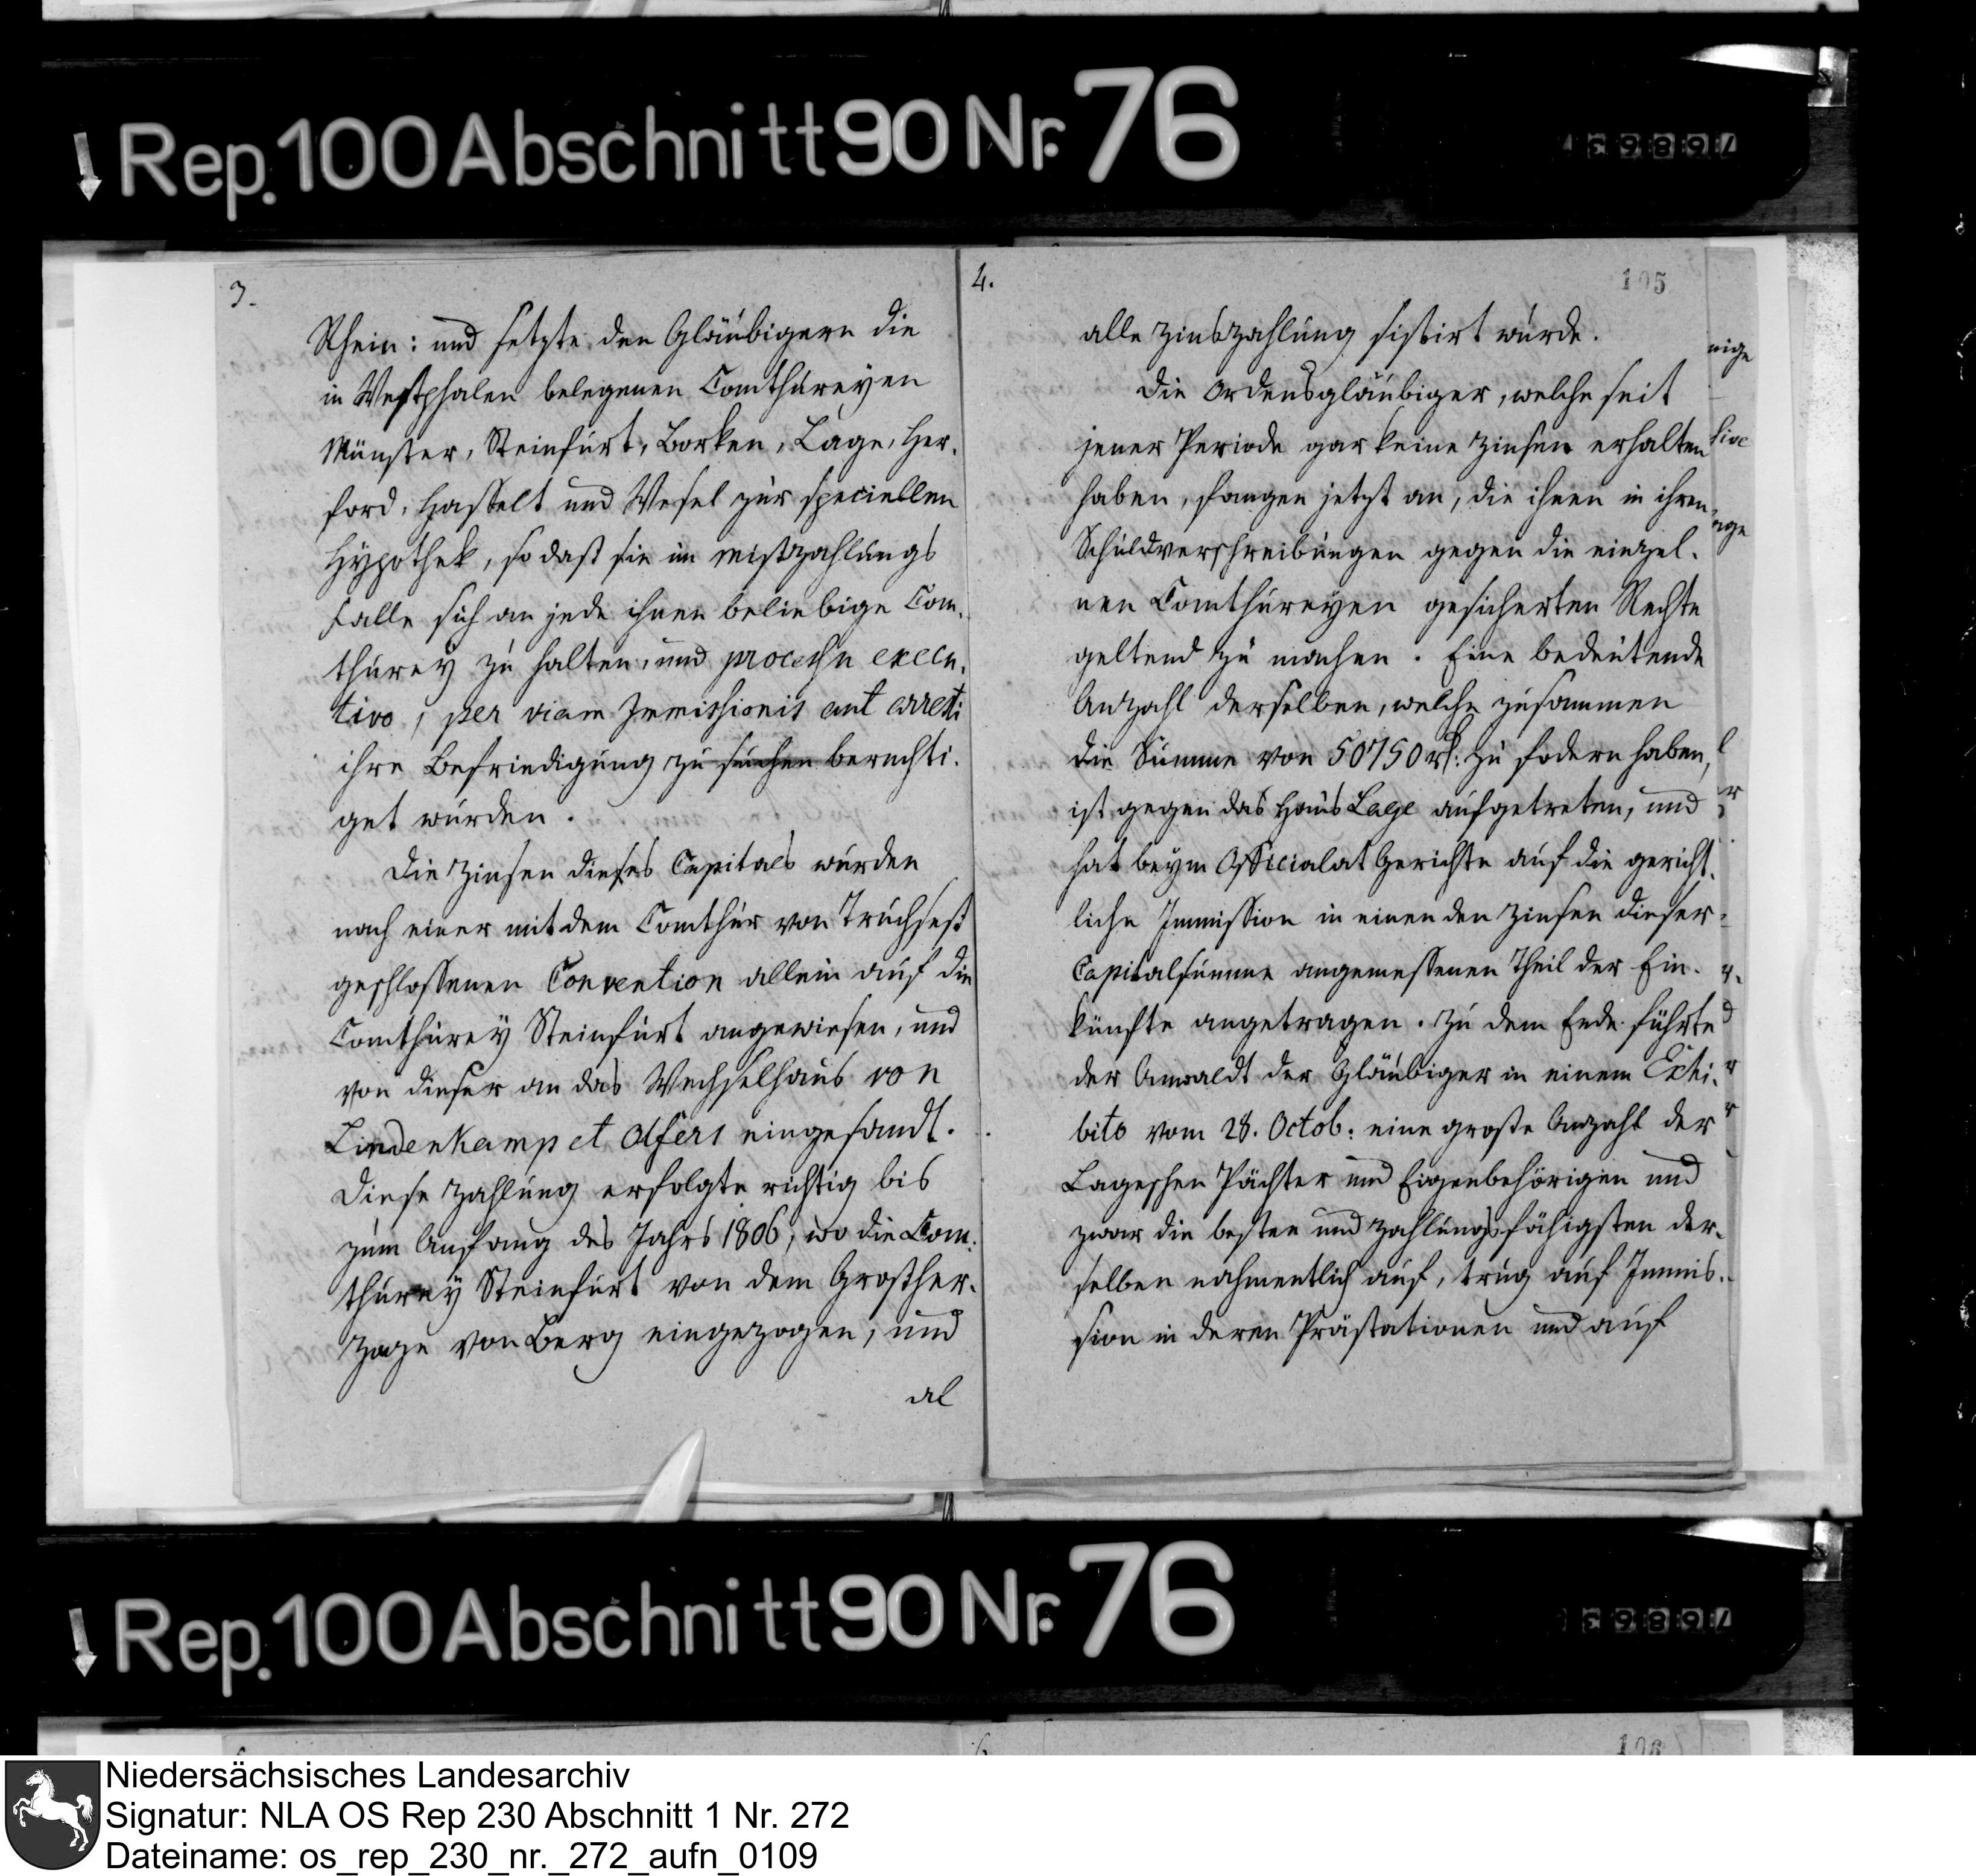 Rep. 100 Abschnitt 90 Nr. 76
76863
3.
Rhein: und setzte den Gläubigern die
in Westphalen belegenen Comthureyen
Münster, Steinfurt, Borken, Lage, Her-
ford, Hasselt und Wesel zur speciellen
Hypothek, so daß sie im Mißzahlungs
Falle sich an jede ihnen beliebige Com-
thurey zu halten, und processu execu-
tivo, per viam Immissionis aut arresti
ihre Befriedigung zu suchen berechti-
get wurden.
Die Zinsen dieses Capitals wurden
nach einer mit dem Comthur von Truchseß
geschlossenen Convention allein auf die
Comthurey Steinfurt angewiesen, und
von dieser an das Wechselhaus von
Lindenkamp et Olfers eingesandt.
Diese Zahlung erfolgte richtig bis
zum Anfang des Jahrs 1806, wo die Com-
thurey Steinfurt von dem Großher-
zoge von Berg eingezogen, und
al
4.
105
alle Zinszahlung sistirt wurde.
Die Ordensgläubiger, welche seit
jener Periode gar keine Zinsen erhalten
haben, fangen jetzt an, die ihnen in ihren
Schuldverschreibungen gegen die einzel-
nen Comthureyen gesicherten Rechte
geltend zu machen. Eine bedeutende
Anzahl derselben, welche zusammen
die Summe von 50750 rt: zu fodern haben,
ist gegen das Haus Lage aufgetreten, und
hat beym Officialat Gerichte auf die gericht-
liche Immission in einen den Zinsen dieser
Capitalsumme angemessenen Theil der Ein-
künfte angetragen. Zu dem Ende führte
der Anwaldt der Gläubiger in einem Exhi-
bito vom 28. Octob: eine große Anzahl der
Lageschen Pächter und Eigenbehörigen und
zwar die besten und zahlungsfähigsten der-
selben nahmentlich auf, trug auf Immis-
sion in deren Prästationen und auf
Rep. 100 Abschnitt 90 Nr. 76
76863
106
Niedersächsisches Landesarchiv
Signatur: NLA OS Rep 230 Abschnitt 1 Nr. 272
Dateiname: os_rep_230_nr._272_aufn_0109